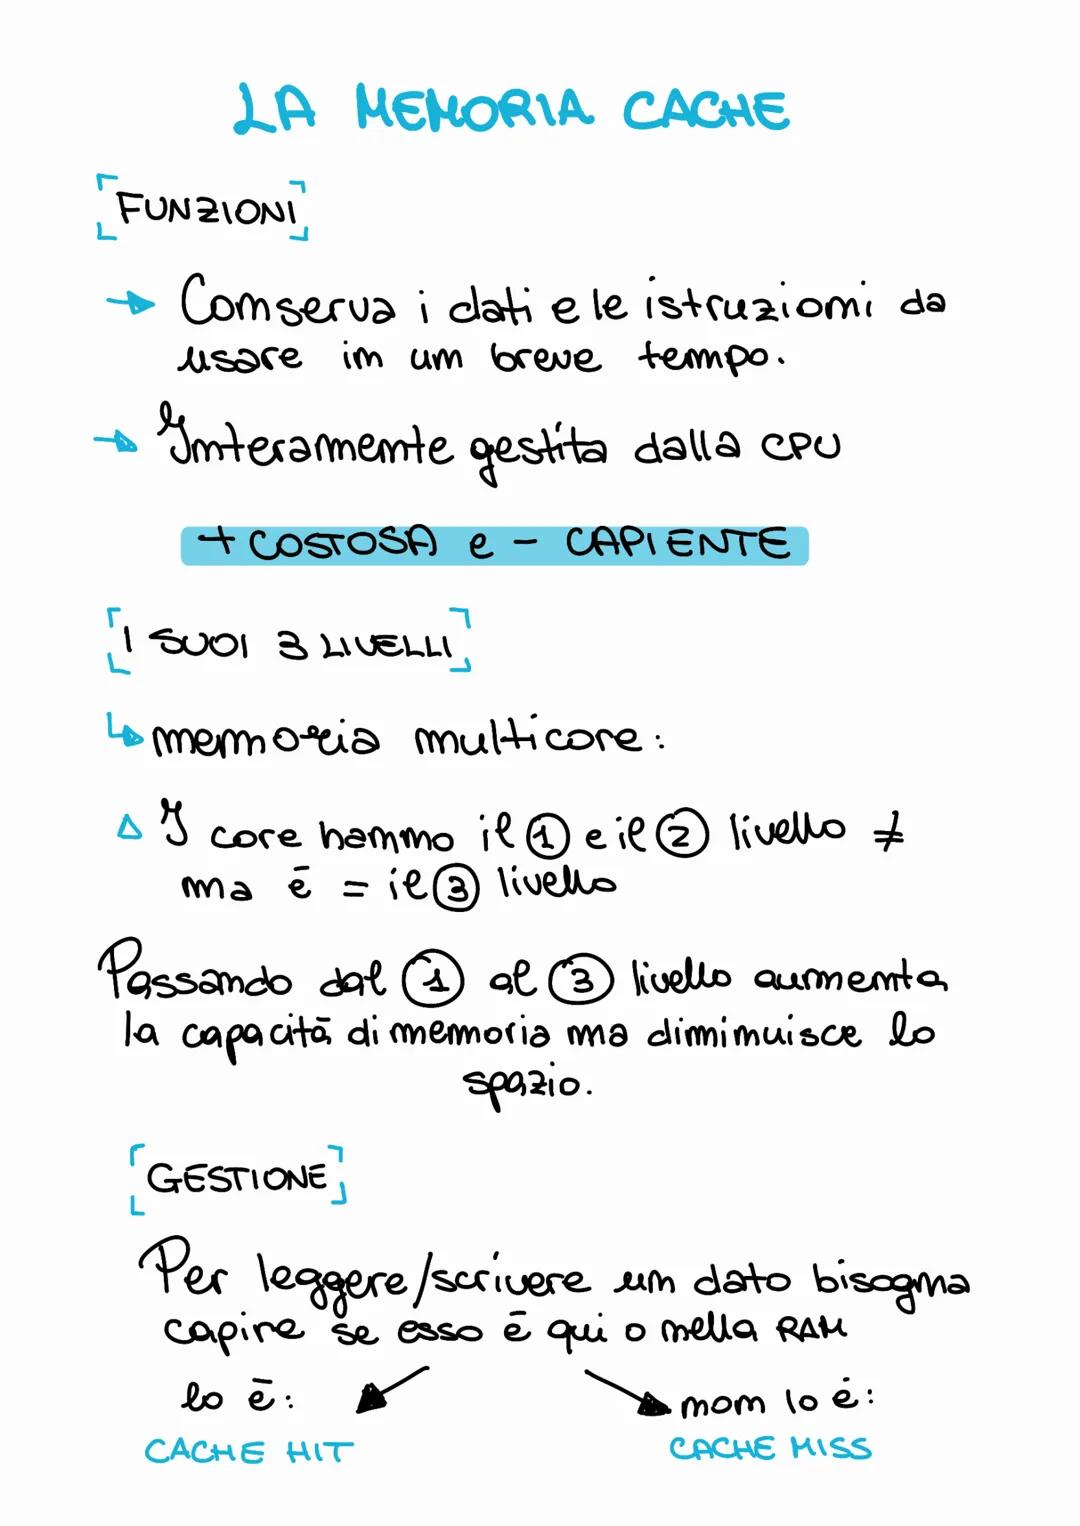 LA MEMORIA CACHE
FUNZIONI
Conserva i dati e le istruzioni da
usare in un breve tempo.
Interamente gestita dalla CPU
+ COSTOSA e - CAPIENTE
I SUOI 3 LIVELLI
memoria multicore:
I core hanno il ① e il ② livello ≠
ma ē = il ③ livello
Passando dal ① al ③ livello aumenta
la capacitā di memoria ma diminuisce lo
spazio.
GESTIONE
Per leggere/scrivere un dato bisogna
capire se esso ē qui o nella RAM
lo ē: non lo è:
CACHE HIT CACHE MISS